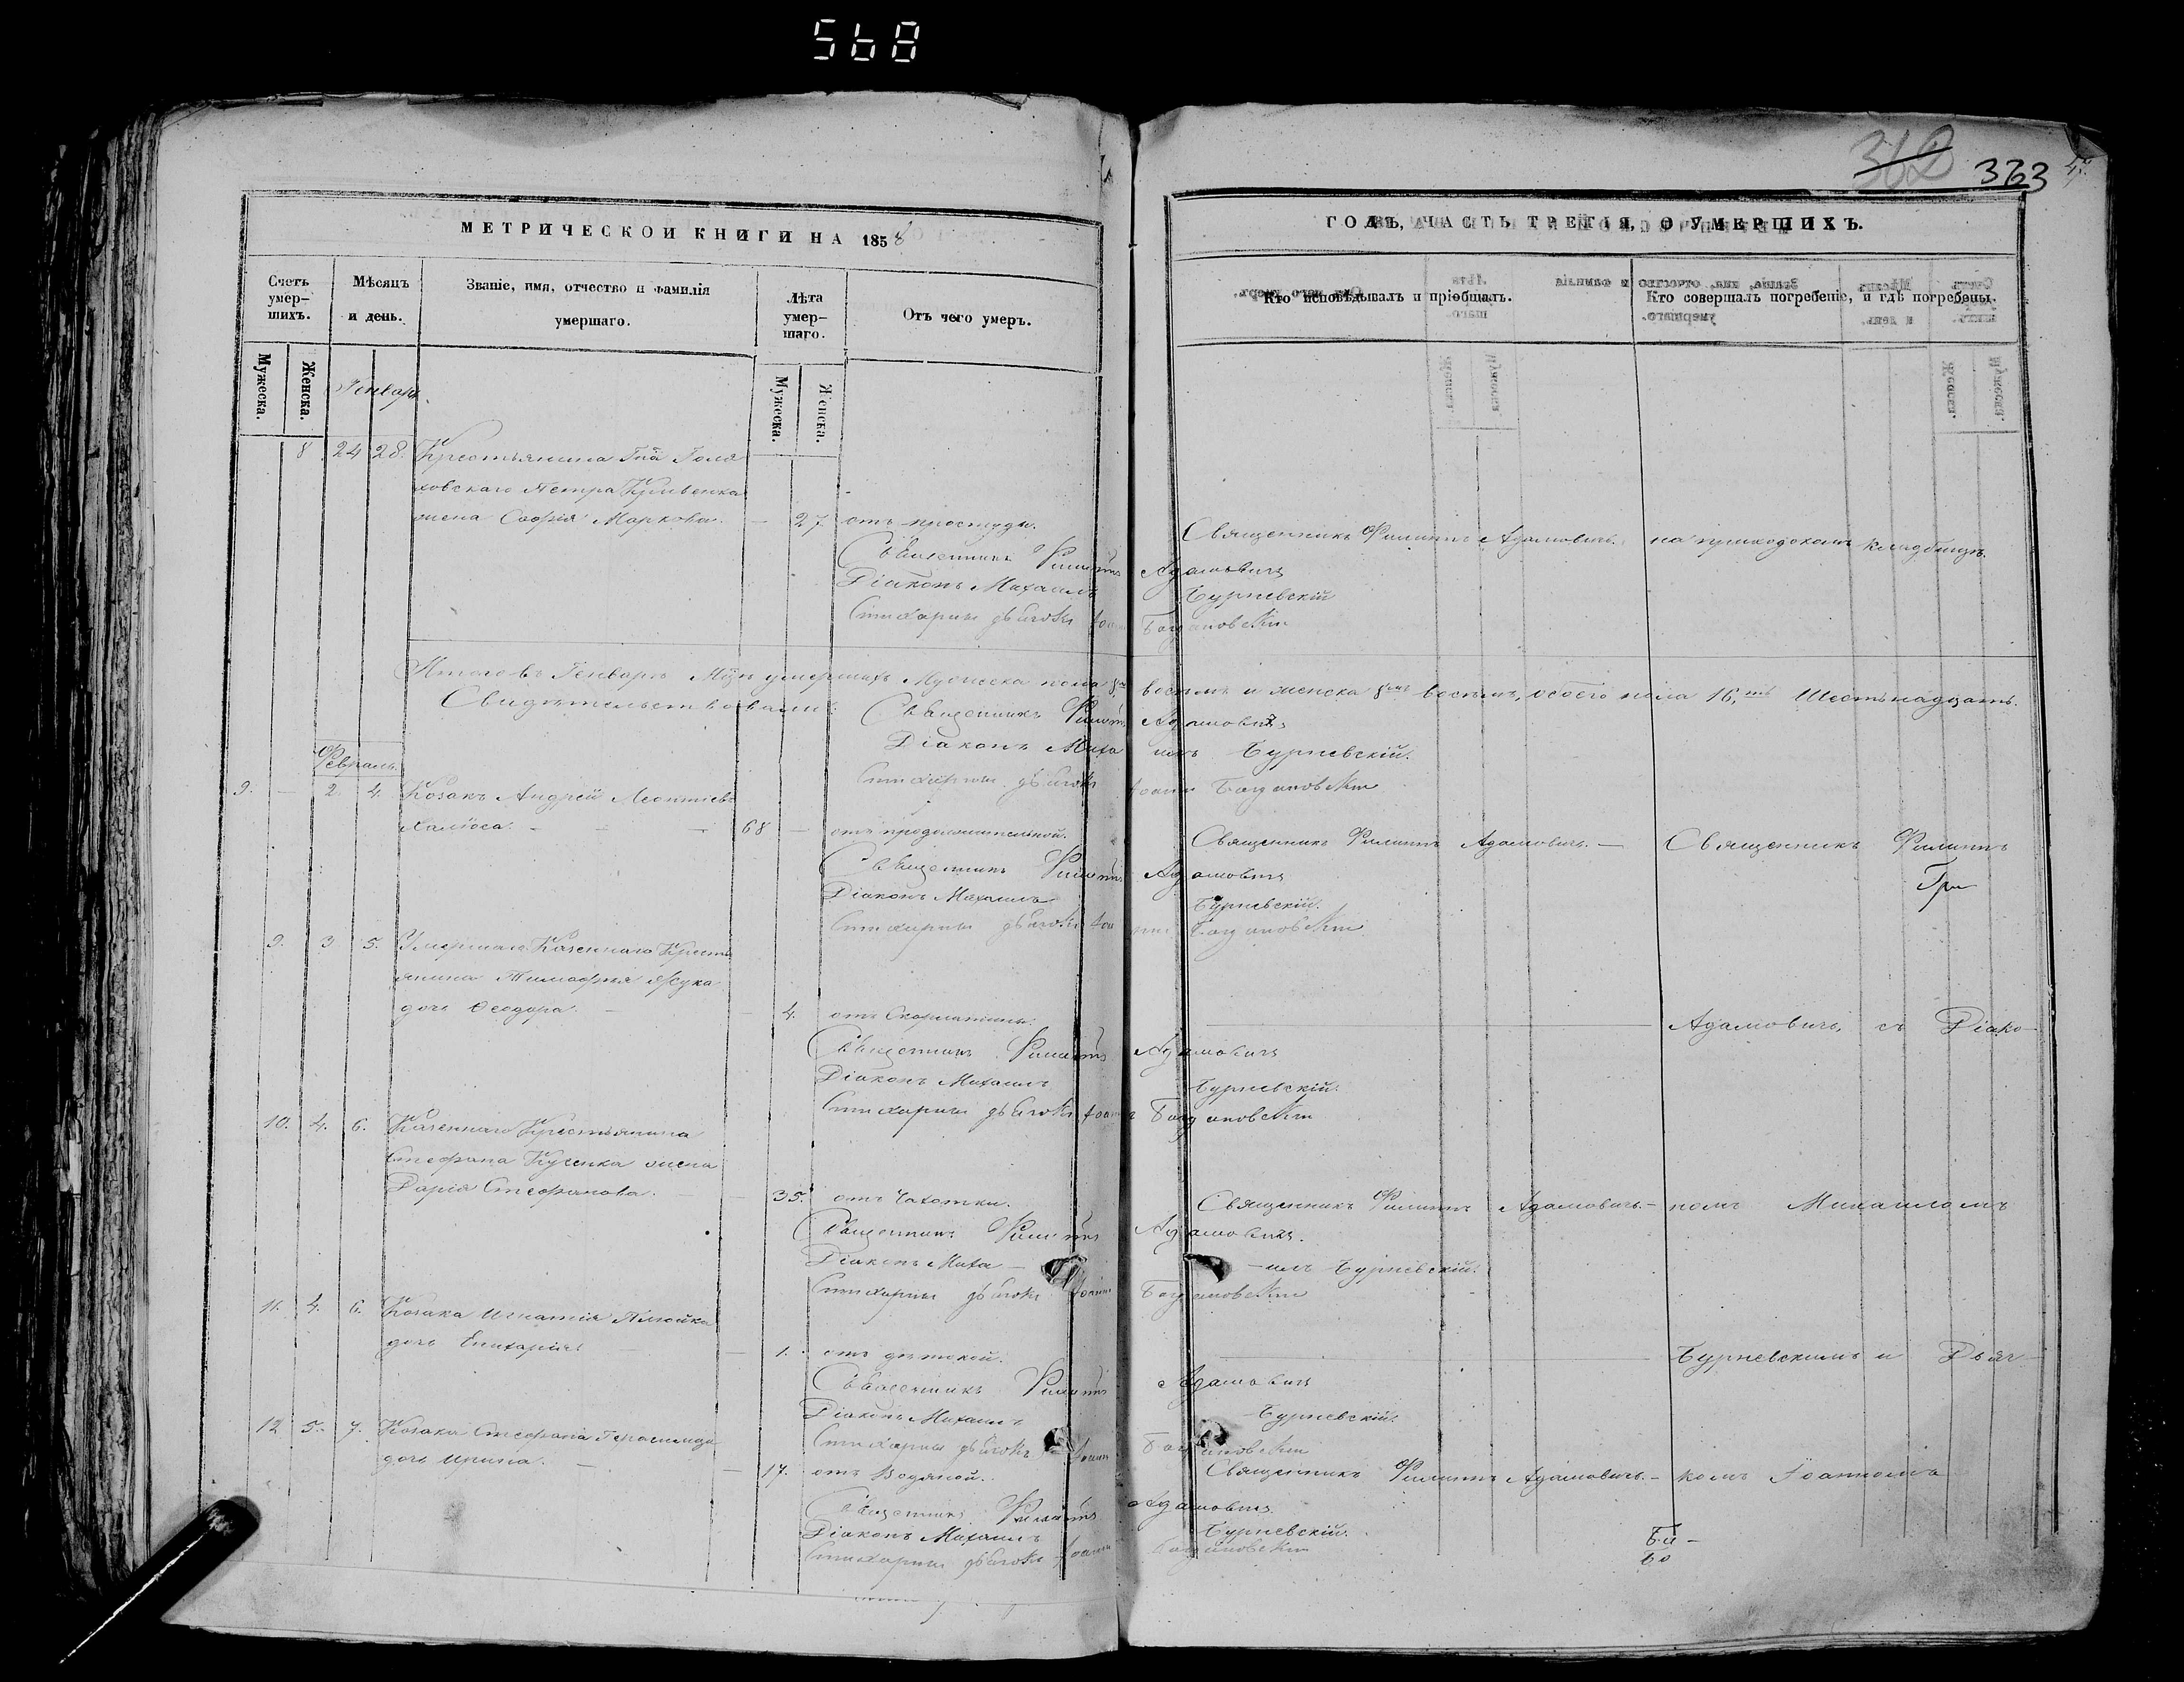 568
362 363
МЕТРИЧЕСКОЙ КНИГИ НА 1858
ГОДЪ, ЧАСТЬ ТРЕТІЯ, О УМЕРШИХЪ.
Счетъ умер-шихъ.
Мѣсяцъ и день.
Званіе, имя, отчество и фамилія умершаго.
Лѣта умер-шаго.
Отъ чего умеръ.
Кто исповѣдывалъ и пріобщалъ.
Кто совершалъ погребеніе, и гдѣ погребены.
Мужеска. Женска.
Мужеска. Женска.
Генварь.
8 24 28. Крестьянина Гпа Голя
ховскаго Петра Кривенка
жена Софія Маркова. — 27. отъ простуды. Священникъ Филиппъ Адамовичъ. на приходскомъ кладбищѣ.
Священникъ Филиппъ Адамовичъ
Діаконъ Михаилъ Бурневскій
Стихарный дьячокъ Іоаннъ
Итого въ Генварѣ Мцѣ умершихъ Мужеска пола 8. восемь и женска 8 восемь, обоего пола 16, Шестьнадцать.
Свидѣтельствовали:
Священникъ Филиппъ Адамовичъ
Діаконъ Михаилъ Бурневскій.
Стихарный дьячокъ Іоаннъ
Февраль.
9. — 2. 4. Козакъ Андрей Леонтіевъ
68 — отъ продолжительной. Священникъ Филиппъ Адамовичъ. — Священникъ Филиппъ
Священникъ Филиппъ Адамовичъ
Діаконъ Михаилъ Бурневскій.
Стихарный дьячокъ Іоаннъ
9. 3. 5. Умершаго Казеннаго Кресть
янина Тимофея Жука
дочь Феодора. — 4. отъ Скарлатины. Адамовичъ, съ Діако-
Священникъ Филиппъ Адамовичъ
Діаконъ Михаилъ Бурневскій.
Стихарный дьячокъ Іоаннъ
10. 4. 6. Казеннаго Крестьянина
Стефана Куценка жена
Дарія Стефанова. — 35. отъ Чахотки. Священникъ Филиппъ Адамовичъ. — номъ Михаиломъ
Священникъ Филиппъ Адамовичъ.
Діаконъ Миха — илъ Бурневскій.
Стихарный дьячокъ Іоаннъ
11. 4. 6. Козака Игнатія
дочь Епихарія — 1. отъ дѣтской. Бурневскимъ и Дьяч-
Священникъ Филиппъ Адамовичъ
Діаконъ Михаилъ Бурневскій.
Стихарный дьячокъ Іоаннъ
12 5. 7. Козака Стефана
дочь Ирина. — 17. отъ Водяной. Священникъ Филиппъ Адамовичъ. — комъ Іоанномъ
Священникъ Филиппъ Адамовичъ.
Діаконъ Михаилъ Бурневскій.
Стихарный дьячокъ Іоаннъ